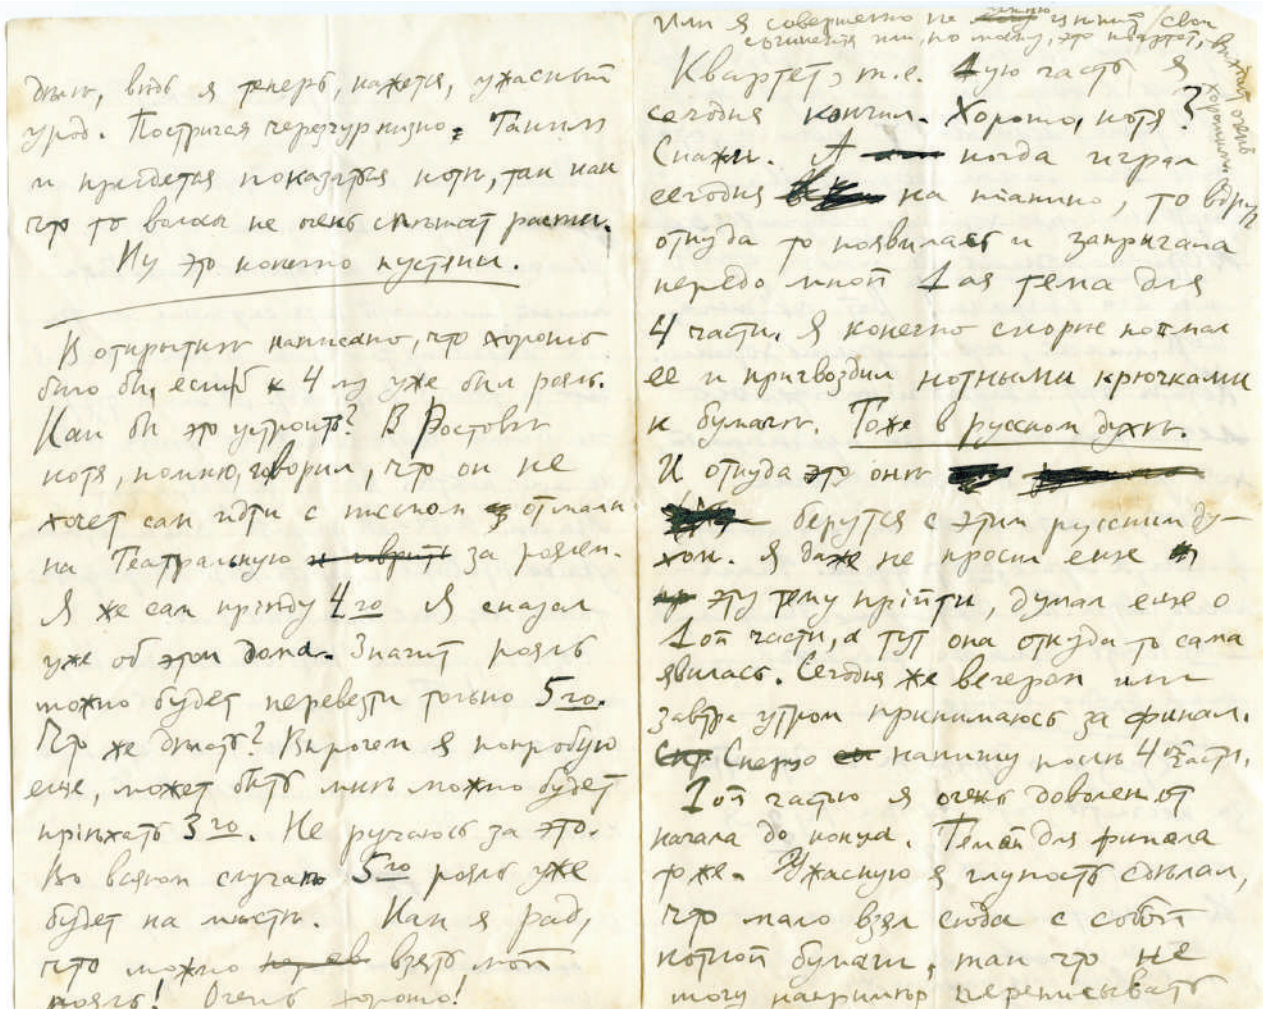 дѣлѣ, вѣдь я теперь, кажется, ужасный
урод. Постригся черезчур низко. Таким
и придется показаться коти, так как
что то волосы не очень спѣшат расти.
Ну это конечно пустяки.
В открыткѣ написано, что хорошо
было бы, еслиб к 4му уже был рояль.
Как бы это устроить? В Ростовѣ
котя, помню, говорил, что он не
хочет сам идти с письмом от мамы
на Театральную за роялем.
Я же сам приѣду 4го Я сказал
уже об этом дома. Значит рояль
можно будет перевезти только 5го.
Что же дѣлать? Впрочем я попробую
еще, может быть мнѣ можно будет
приѣхать 3го. Не ручаюсь за это.
Во всяком случаѣ 5го рояль уже
будет на мѣстѣ. Как я рад,
что можно взять мой
рояль! Очень хорошо!
Или я совершенно не цѣню свои
сочинения или, по моему, это квартет,
очень
хороший
Квартет, т.е. 1ую часть я
сегодня кончил. Хорошо, котя?
Скажи. А когда играл
сегодня на пианино, то вдруг
откуда то появилась и закричала
передо мной 1ая тема для
4 части. Я конечно скорѣе поймал
ее и пригвоздил нотными крючками
к бумагѣ. Тоже в русском духѣ.
И откуда это онѣ
берутся с этим русским ду-
хом. Я даже не просил еще
эту тему прійти, думал еще о
1ой части, а тут она откуда то сама
явилась. Сегодня же вечером или
завтра утром принимаюсь за финал.
Сперва напишу послѣ 4ую часть.
1ой частью я очень доволен от
начала до конца. Темой для финала
тоже. Ужасную я глупость сдѣлал,
что мало взял сюда с собой
нотной бумаги, так что не
могу напримѣр переписывать